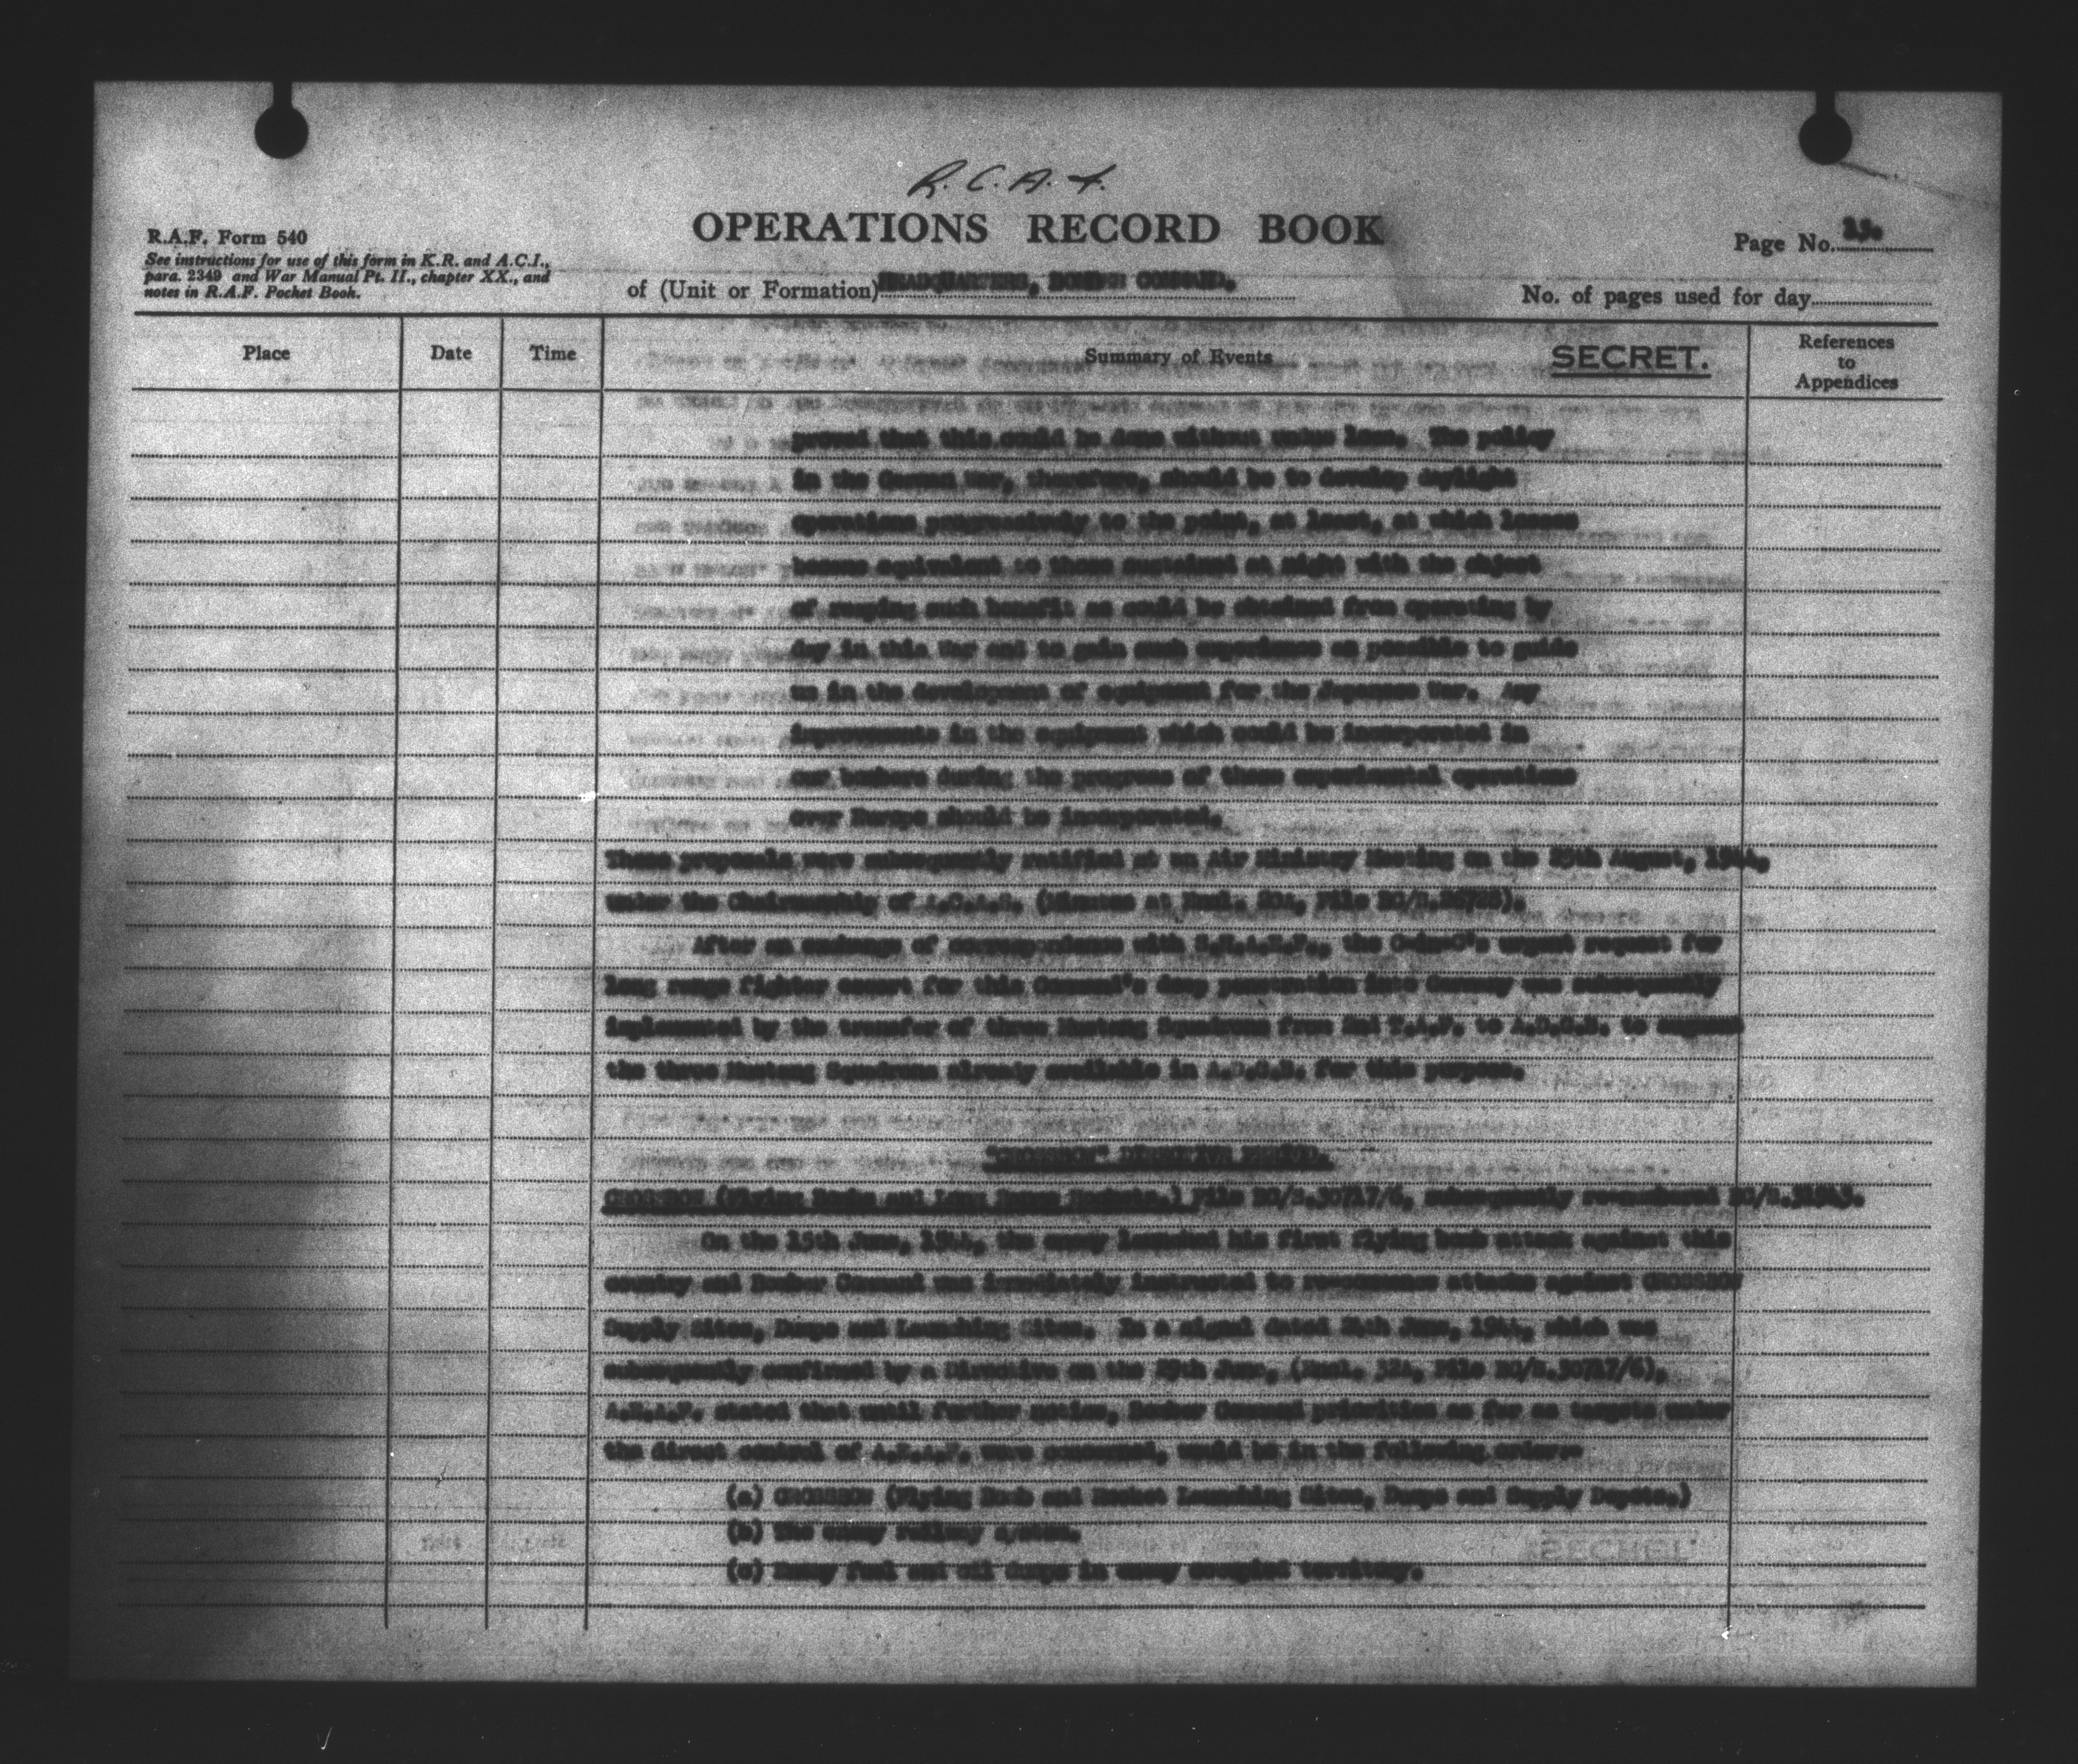 R.C.A.F.
OPERATIONS RECORD BOOK
R.A.F. Form 540
See instructions for use of this form in K.R. and A.C.I.,
para. 2349 and War Manual Pt. II., chapter XX., and
notes in R.A.F. Pocket Book.
Page No.
of (Unit or Formation) HEADQUARTERS, BOMBER COMMAND.
No. of pages used for day
Place Date Time Summary of Events SECRET. References
to
Appendices
proved that this could be done without undue loss. The policy
in the German War, therefore, should be to develop daylight
operations progressively to the point, at least, at which losses
become equivalent to those sustained at night with the object
of reaping such benefit as could be obtained from operating by
day in this War and to gain such experience as possible to guide
us in the development of equipment for the Japanese War. Any
improvements in the equipment which could be incorporated in
our bombers during the progress of these experimental operations
over Europe should be incorporated.
These proposals were subsequently ratified at an Air Ministry Meeting on the 25th August, 1944,
under the Chairmanship of A.C.A.S. (Minutes at Encl. 20A, File BC/S.26726).
After an exchange of correspondence with S.H.A.E.F., the C-in-C's urgent request for
long range fighter escort for this Command's deep penetration into Germany was subsequently
implemented by the transfer of three Mustang Squadrons from 2nd T.A.F. to A.D.G.B. to augment
the three Mustang Squadrons already available in A.D.G.B. for this purpose.
"CROSSBOW"
CROSSBOW (Flying Bombs and Long Range Rockets.) File BC/S.30717/6, subsequently renumbered BC/S.31543.
On the 15th June, 1944, the enemy launched his first flying bomb attack against this
country and Bomber Command was immediately instructed to re-commence attacks against CROSSBOW
Supply Sites, Dumps and Launching Sites. In a signal dated 24th June, 1944, which was
subsequently confirmed by a Directive on the 29th June, (Encl. 32A, File BC/S.30717/6),
A.E.A.F. stated that until further notice, Bomber Command priorities as far as targets under
the direct control of A.E.A.F. were concerned, would be in the following order:-
(a) CROSSBOW (Flying Bomb and Rocket Launching Sites, Dumps and Supply Depots.)
(b) The enemy railway system.
(c) Enemy fuel and oil dumps in enemy occupied territory.